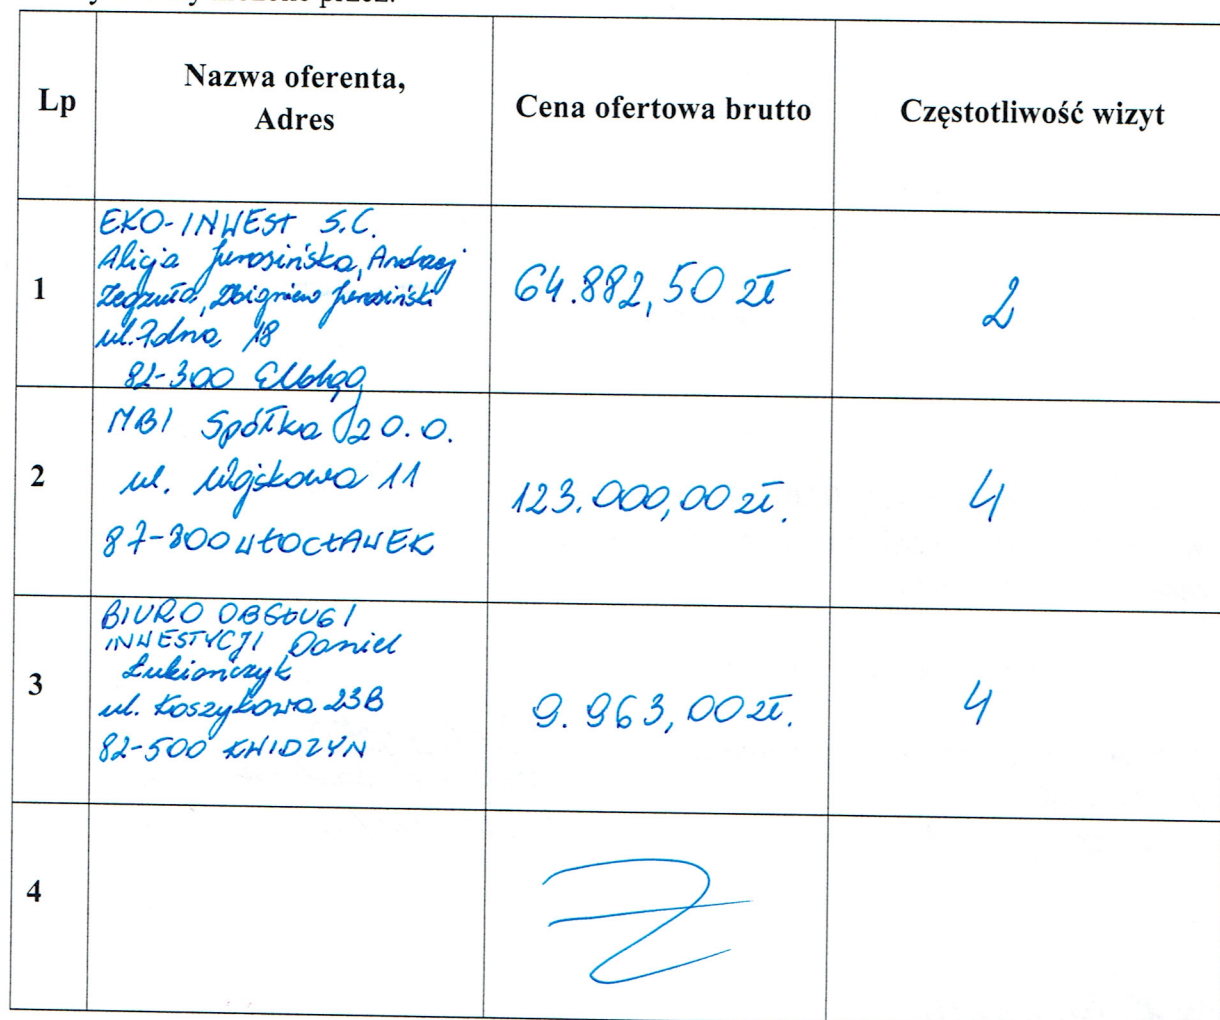 Lp
Nazwa oferenta,
Adres
Cena ofertowa brutto
Częstotliwość wizyt
1
EKO-INWEST S.C.
Alicja Jurosińska, Andrzej
Zbigniew Jurosiński
ul. 18
82-300 Elbląg
64.882,50 zł
2
2
MBI Spółka z o.o.
ul. Wojskowa 11
87-800 WŁOCŁAWEK
123.000,00 zł.
4
3
BIURO OBSŁUGI
INWESTYCJI Daniel
Łukiańczyk
ul. Koszykowa 23B
82-500 KWIDZYN
9.963,00 zł.
4
4